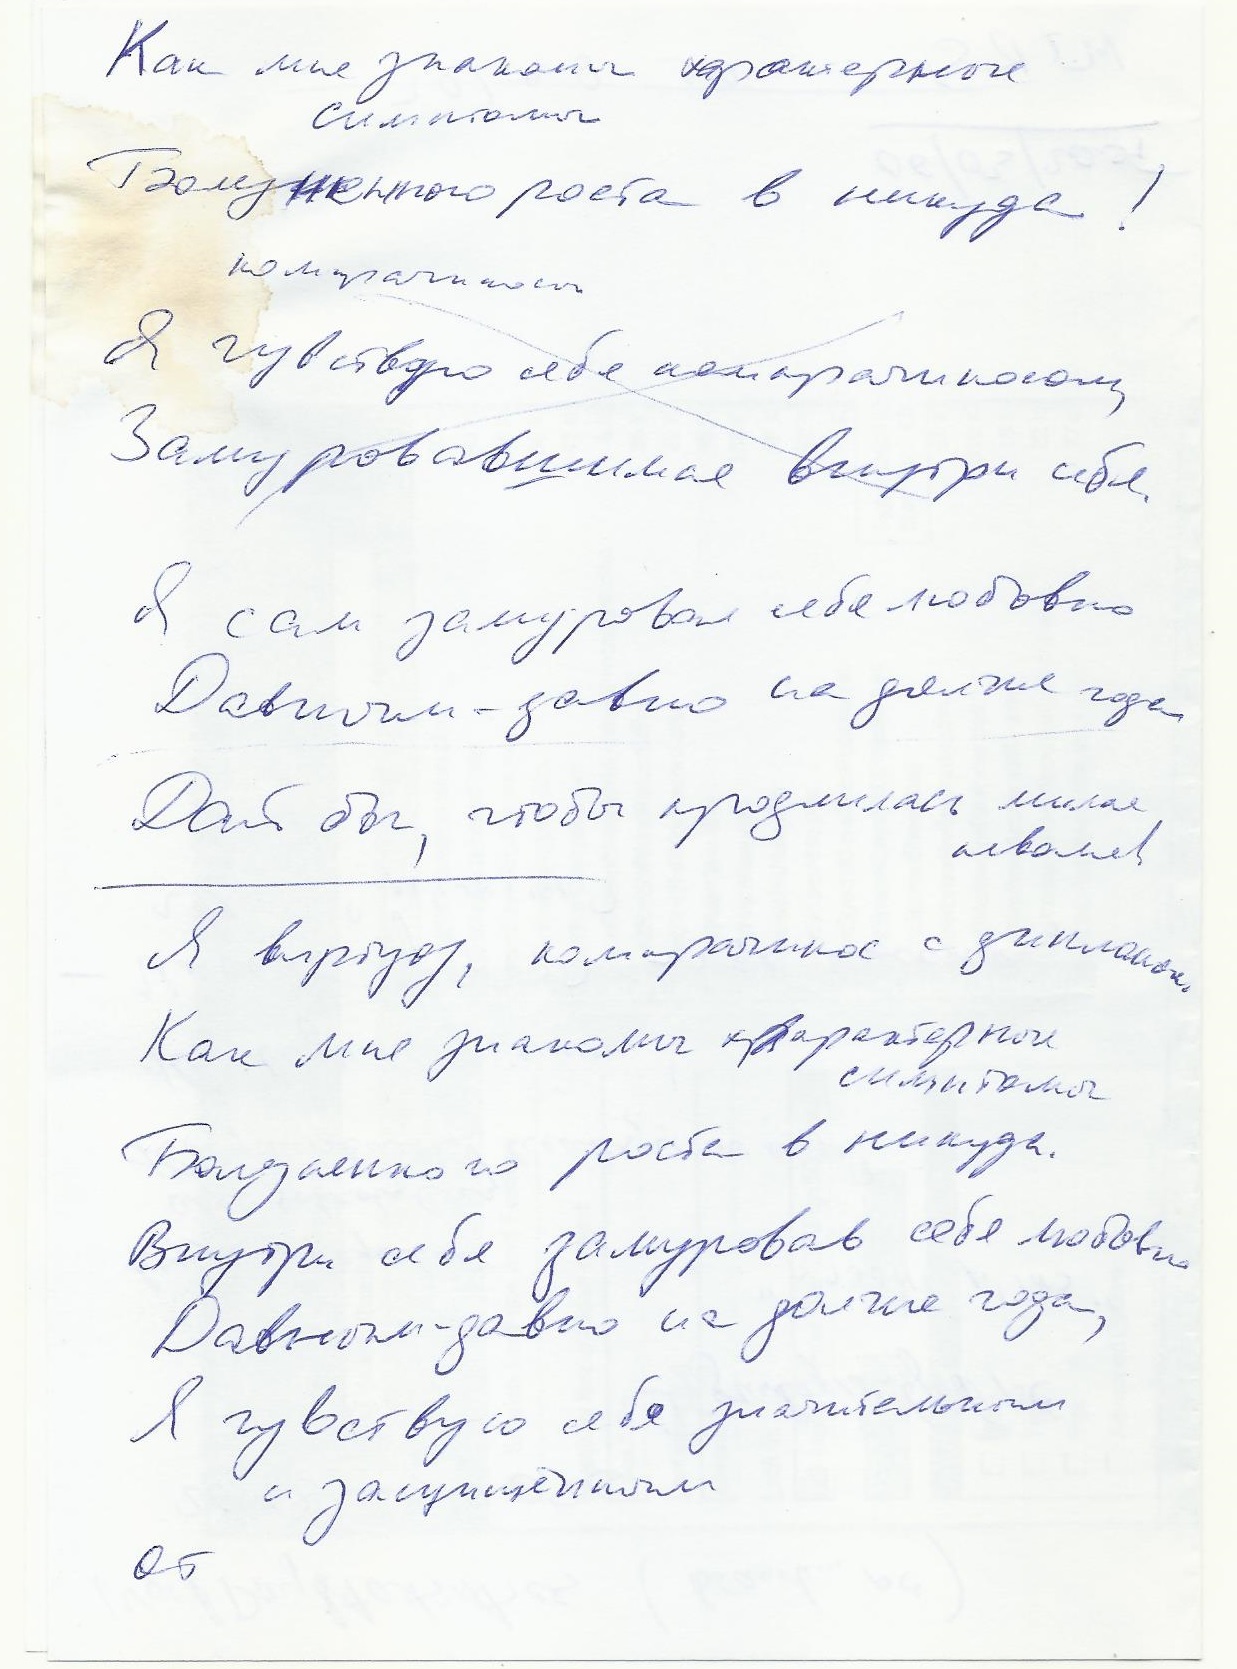 Как мне знакомы характерные
симптомы
Болезненного роста в никуда!
компрачикосы
Я чувствую себя компрачикосом,
Замуровавшимся внутри себя.
Я сам замуровал себя любовно
Давным-давно на долгие года
Дай бог, чтобы продлилась милая
неволя!
Я виртуоз, компрачикос с дипломом.
Как мне знакомы характерные
симптомы
Болезненного роста в никуда.
Внутри себя замуровав себя любовно
Давным-давно на долгие года,
Я чувствую себя значительным
и защищённым
от